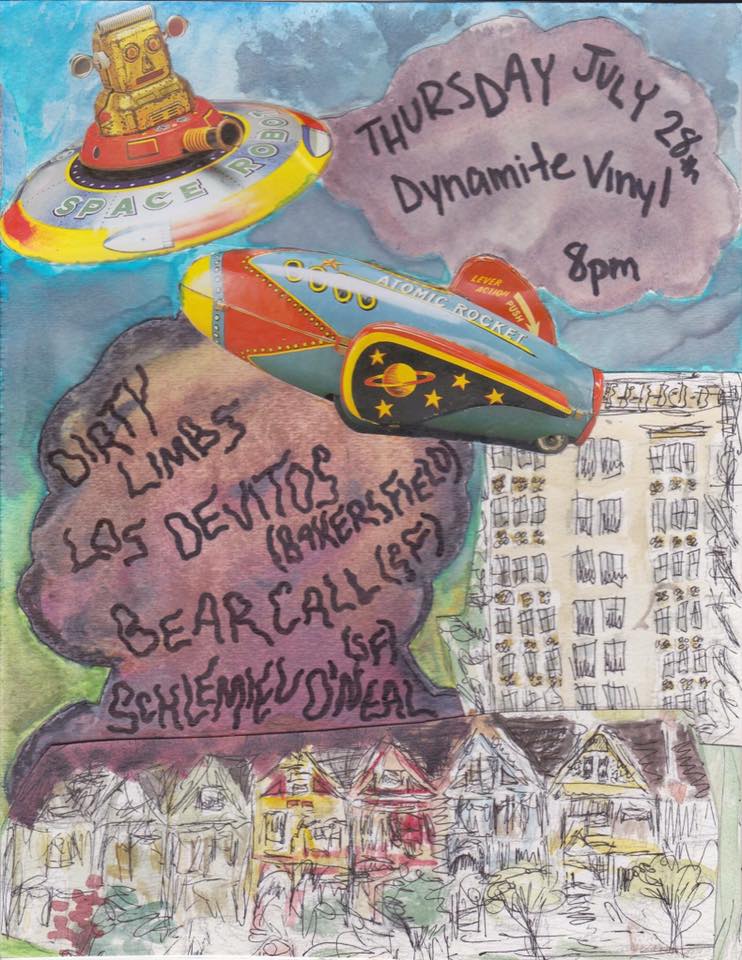 SPACE ROBOT
THURSDAY JULY 28th
Dynamite Vinyl
8pm
ATOMIC ROCKET
LEVER
ACTION
PUSH
DIRTY
LIMBS
LOS DEVITOS
(BAKERSFIELD)
BEAR CALL (SF)
(SF)
SCHLEMIEL O'NEAL